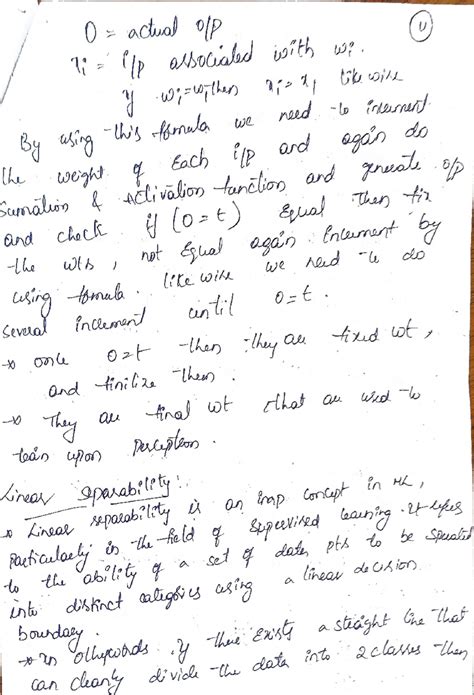 O = actual o/p
xi = i/p associated with wi.
if wi=w1 then xi=x1 likewise
By using this formula we need to increment
the weight of Each i/p and again do
Sumation & Activation function and generate o/p
and check if (O=t) Equal then fix
the wts, not Equal again Increment by
using formula. likewise we need to do
several increment until O=t.
→ once O=t then they are fixed wt,
and finilize them.
→ They are final wt that are used to
train upon Perceptron.
Linear Separability:
→ Linear separability is an imp concept in ML,
Particularly in the field of supervised learning. It refers
to the ability of a set of data pts to be separated
into distinct categories using a linear decision
boundary.
→ In otherwords if there Exists a straight line that
can cleanly divide the data into 2 classes then